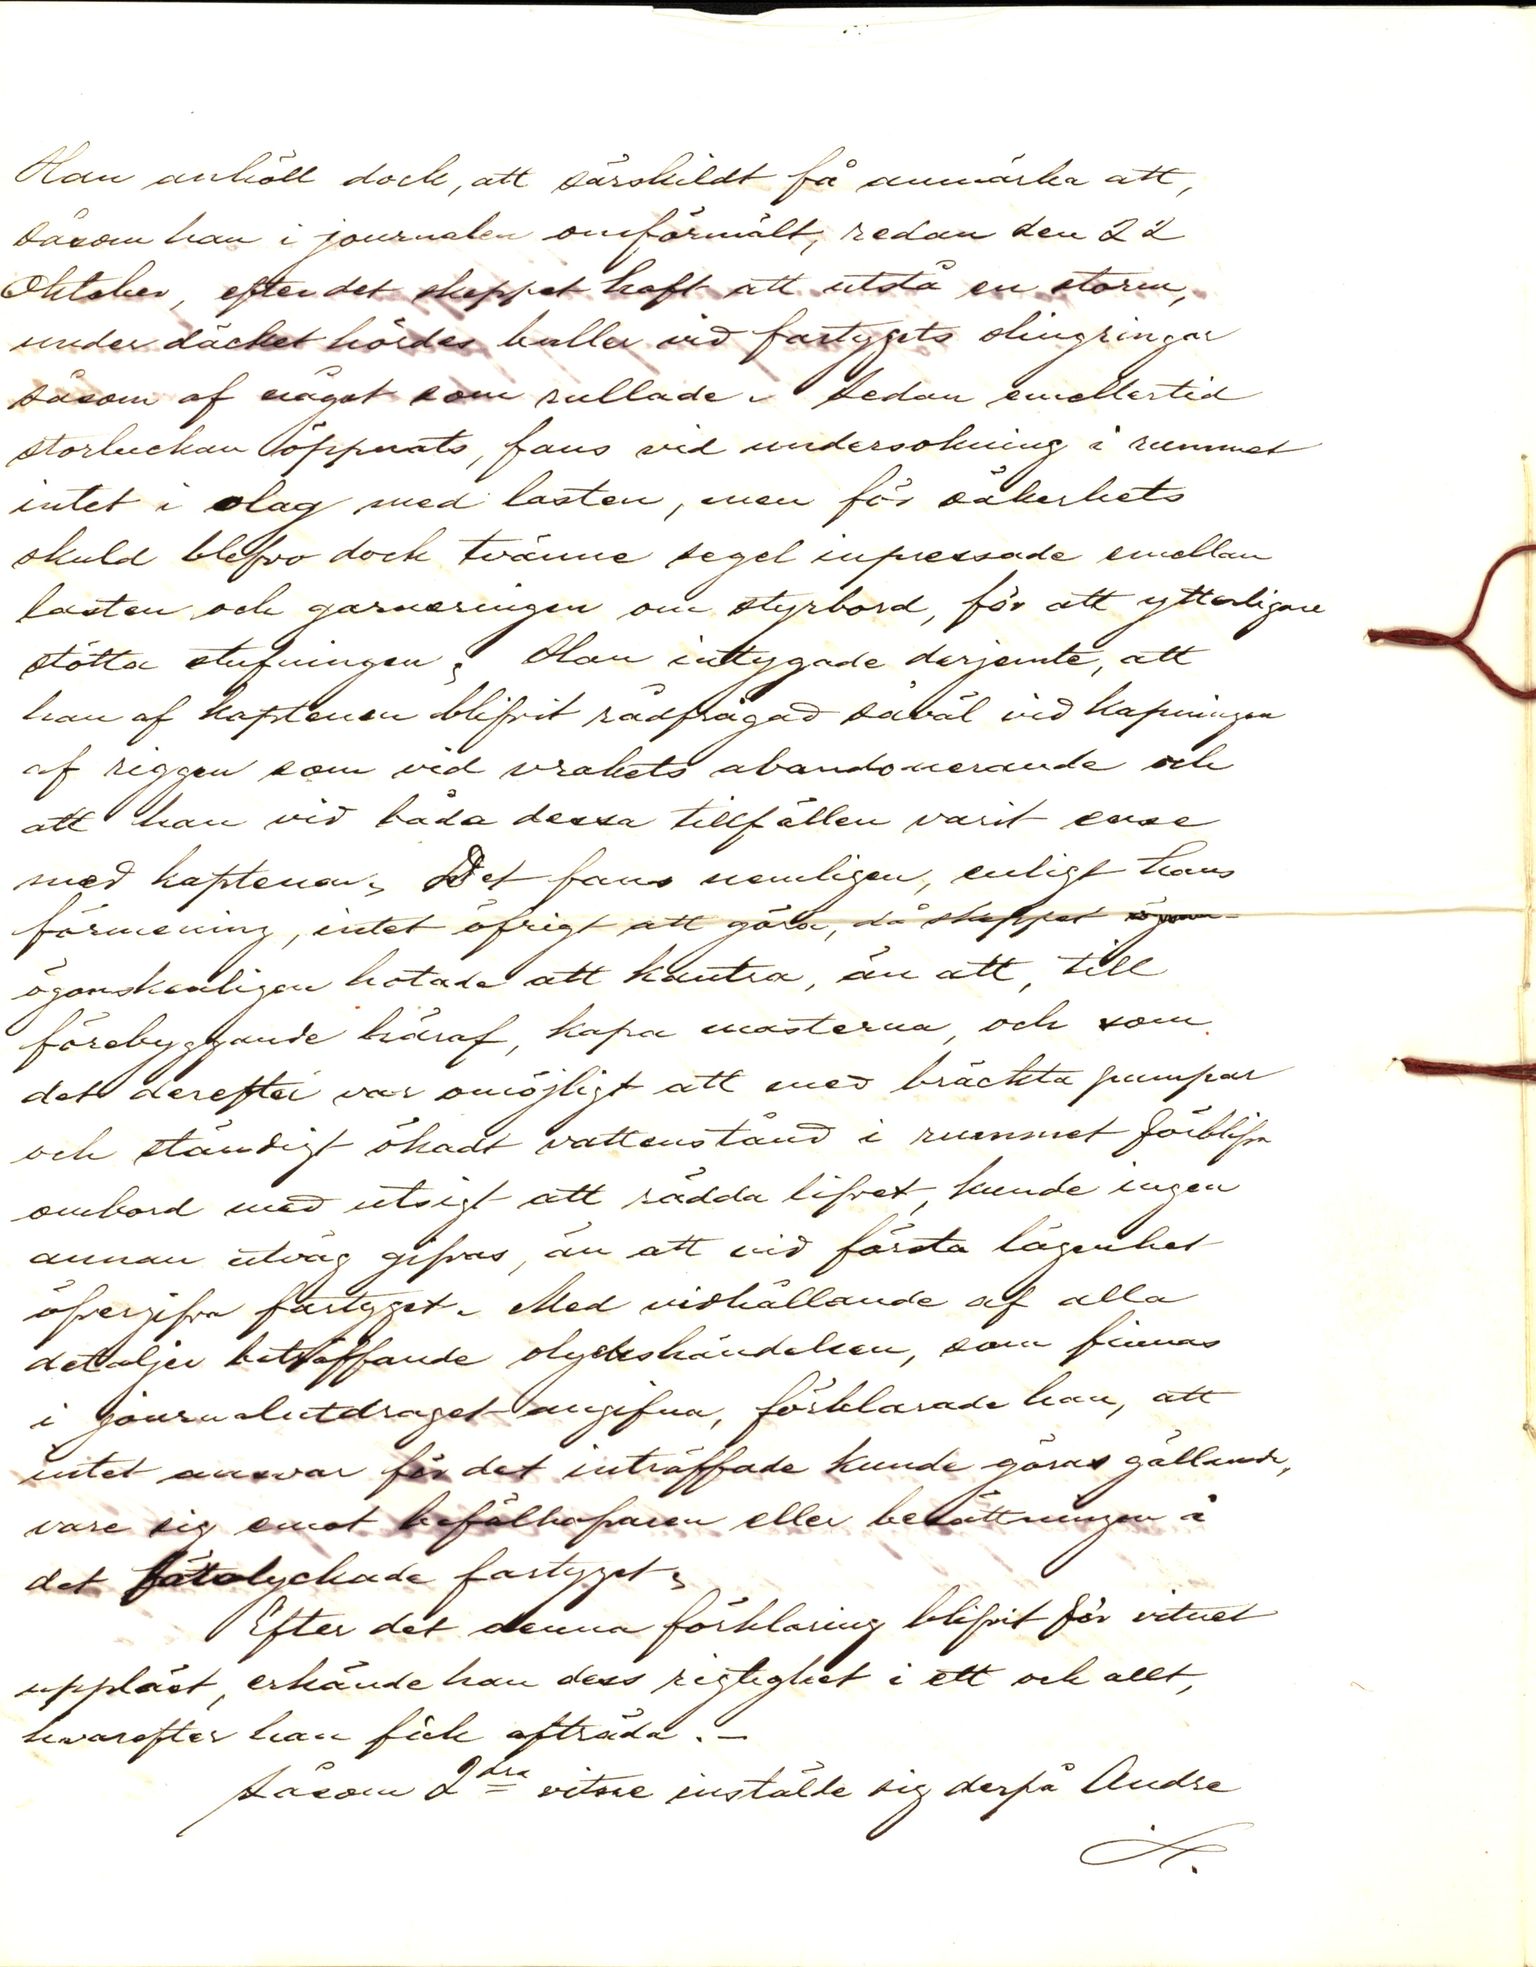 Han anhöll dock, att särskildt få anmärka att,
såsom han i journalen omförmält, redan den 22
Oktober, efter det skeppet haft att utstå en storm,
under däcket hördes buller vid fartygets slingringar
såsom af något som rullade. Sedan emellertid
storluckan öppnats, fans vid undersökning i rummet
intet i olag med lasten, men för säkerhets
skuld blefvo dock tvänne segel inpressade emellan
lasten och garneringen om styrbord, för att ytterligare
stötta stufningen. Han intygade derjemte, att
han af kaptenen blifvit rådfrågad såväl vid kapningen
af riggen som vid vrakets abandonerande och
att han vid båda dessa tillfällen varit ense
med kaptenen. Det fans nemligen, enligt hans
förmening, intet öfrigt att göra, då skeppet
ögonskenligen hotade att kantra, än att, till
förebyggande häraf, kapa masterna, och som
det derefter var omöjligt att med bräckta pumpar
och ständigt ökadt vattenstånd i rummet förblifva
ombord med utsigt att rädda lifvet, kunde ingen
annan utväg gifvas, än att vid första lägenhet
öfvergifva fartyget. Med vidhållande af alla
detaljer beträffande olyckshändelsen, som finnas
i journalutdraget angifna, förklarade han, att
intet ansvar för det inträffade kunde göras gällande,
vare sig emot befälhafvaren eller besättningen å
det förolyckade fartyget.
Efter det denna förklaring blifvit för vitnet
uppläst, erkände han dess rigtighet i ett och allt,
hvarefter han fick afträda. —
Såsom 2dra vitne instälde sig derpå Andre